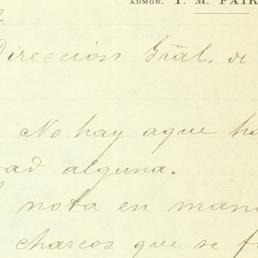 ADMOR. T. M. FAIR
Dirección Gral. de
No hay aque ha
dad alguna.
nota en man
charcos que se f